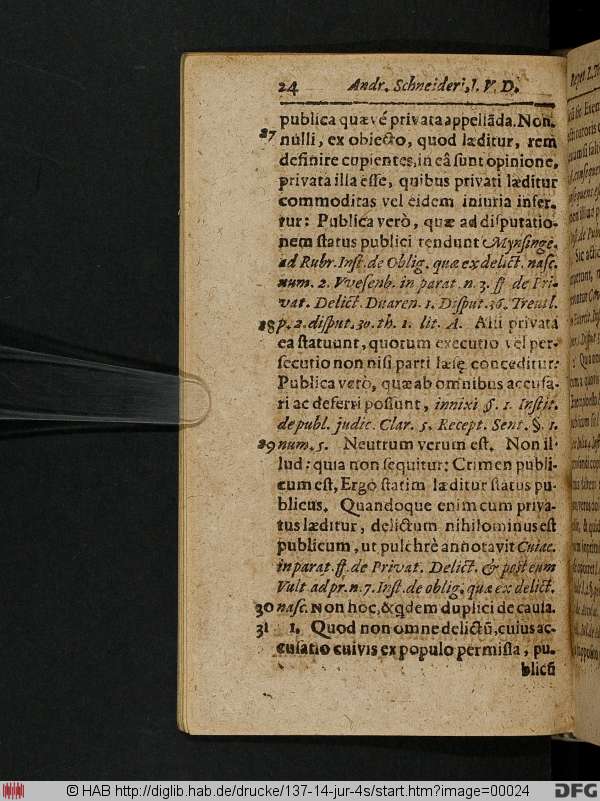 24 Andr. Schneideri, I. V. D.
publica quæ vé privata appellãda. Non-
27 nulli, ex obiecto, quod læditur, rem
definire cupientes, in eâ sunt opinione,
privata illa esse, quibus privati læditur
commoditas vel eidem iniuria infer-
tur: Publica verò, quæ ad disputatio-
nem status publici tendunt Mynsinge.
ad Rubr. Inst. de Oblig. quæ ex delict. nasc.
num. 2. Vvesenb. in parat. n. 3. ff de Pri-
vat. Delict. Duaren. 1. Disput. 36. Treutl.
28 p. 2. disput. 30. th. 1. lit. A. Alii privata
ea statuunt, quorum executio vel per-
secutio non nisi parti læsę conceditur:
Publica verò, quæ ab omnibus accusa-
ri ac deferri possunt, innixi §. 1. Instit.
de publ. judic. Clar. 5. Recept. Sent. §. 1.
29 num. 5. Neutrum verum est. Non il-
lud: quia non sequitur: Crimen publi-
cum est, Ergo statim læditur status pu-
blicus. Quandoque enim cum priva-
tus læditur, delictum nihilominus est
publicum, ut pulchrè annotavit Cuiac.
in parat. ff. de Privat. Delict. & post eum
Vult ad pr. n. 7. Inst. de oblig. quæ ex delict.
30 nasc. Non hoc, & qdem duplici de causa.
31 1. Quod non omne delictũ, cuius ac-
cusatio cuivis ex populo permissa, pu-
blicũ
© HAB http://diglib.hab.de/drucke/137-14-jur-4s/start.htm?image=00024
DFG